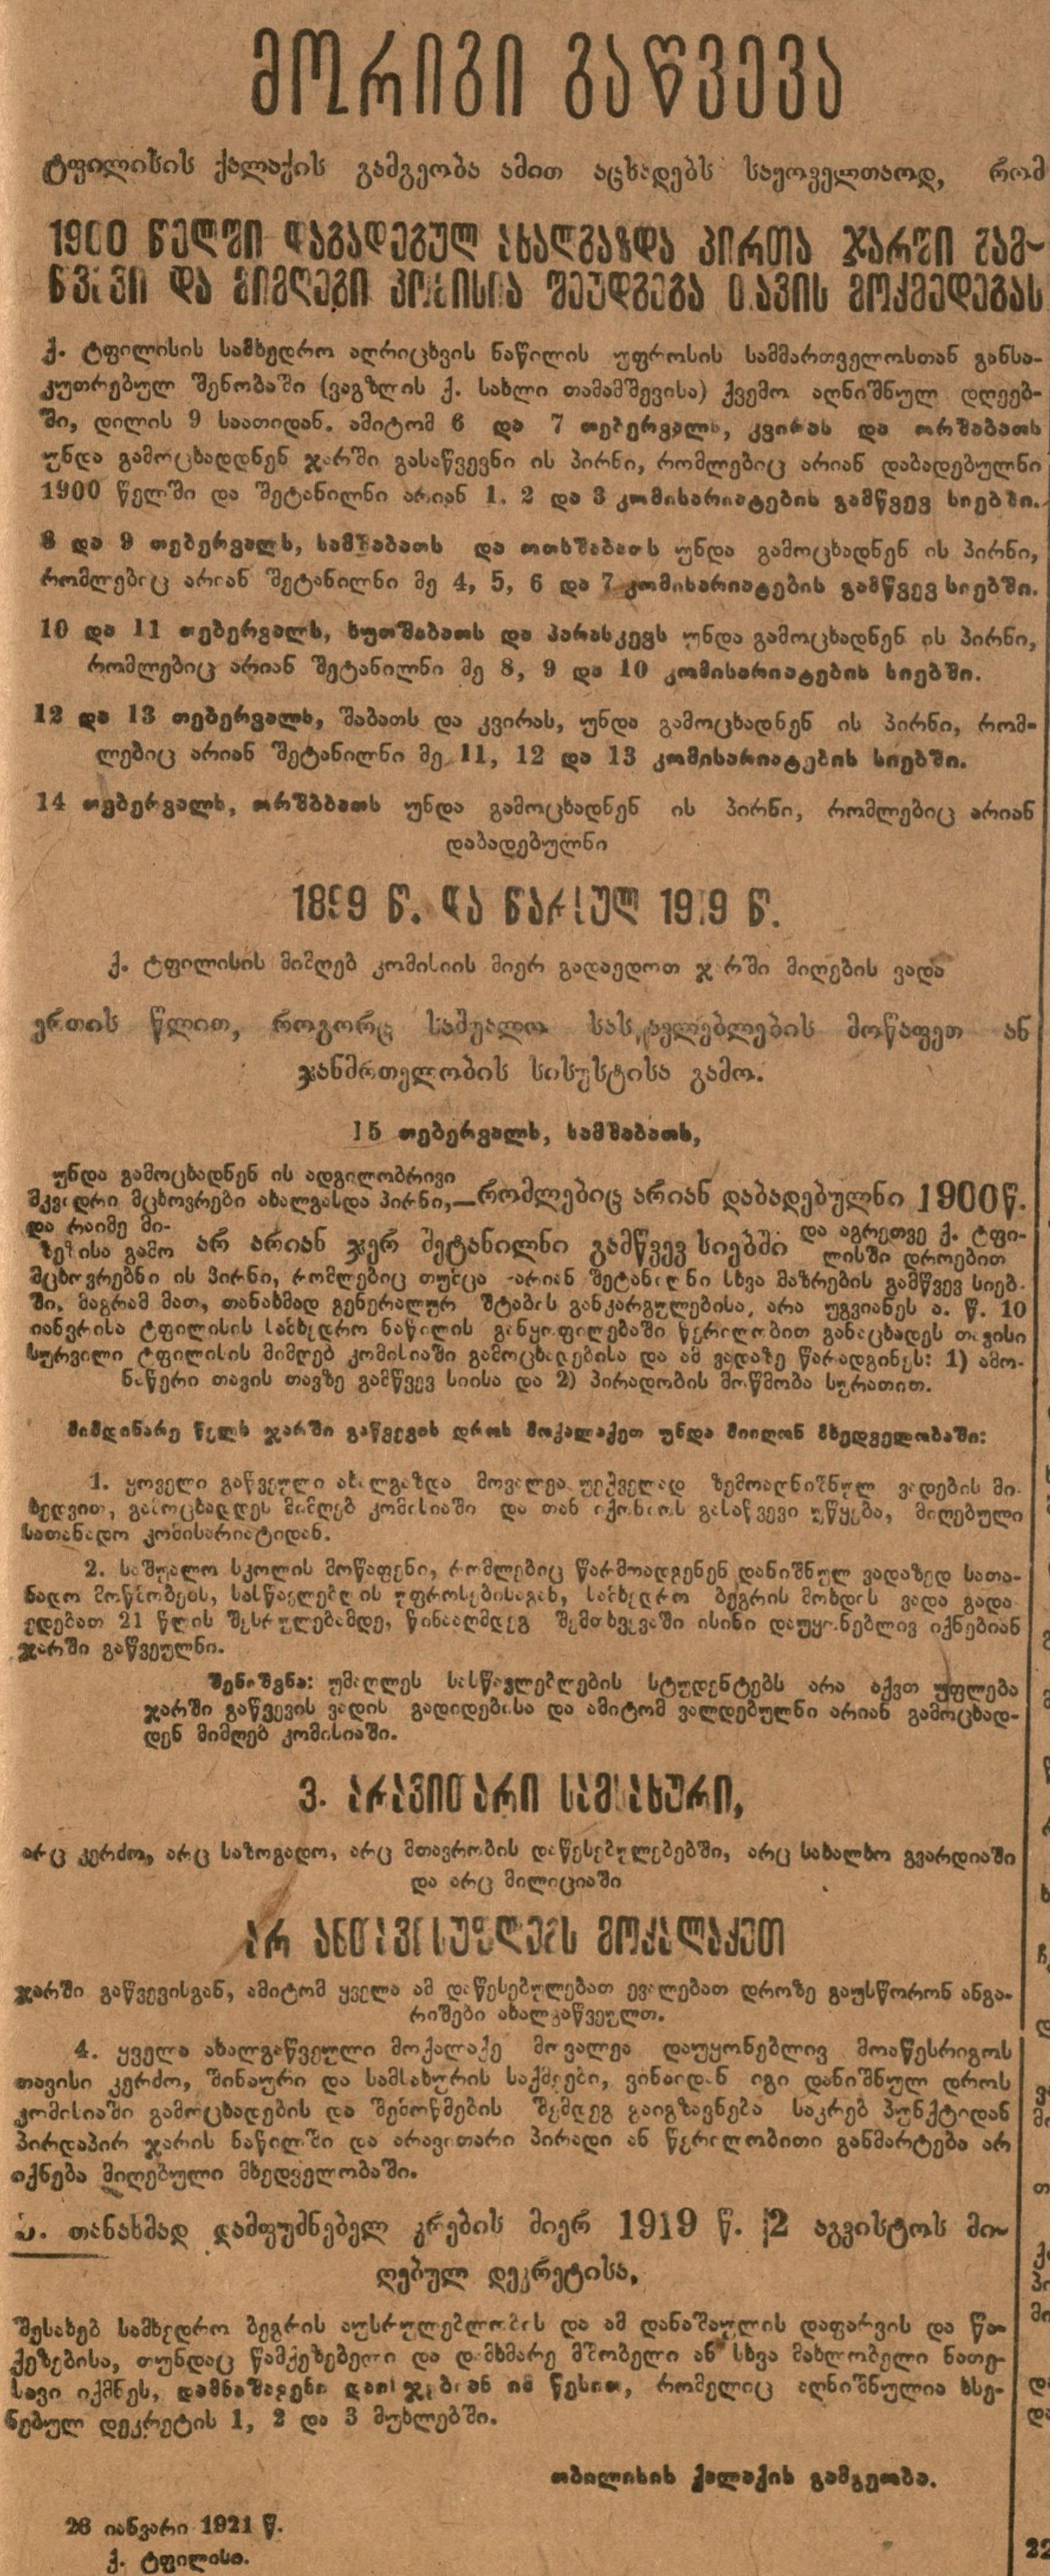 მორიგი გაწვევა
ტფილისის ქალაქის გამგეობა ამით აცხადებს საყოველთაოდ, რომ
1900 წელში დაბადებულ ახალგაზდა პირთა ჯარში გამ-
წვევი და მიმღები კომისია შეუდგება თავის მოქმედებას
ქ. ტფილისის სამხედრო აღრიცხვის ნაწილის უფროსის სამმართველოსთან განსა-
კუთრებულ შენობაში (ვაგზლის ქ. სახლი თამამშევისა) ქვემო აღნიშნულ დღეებ-
ში, დილის 9 საათიდან. ამიტომ 6 და 7 თებერვალს, კვირას და ორშაბათს
უნდა გამოცხადდნენ ჯარში გასაწვევნი ის პირნი, რომლებიც არიან დაბადებულნი
1900 წელში და შეტანილნი არიან 1, 2 და 3 კომისარიატების გამწვევ სიებში.
8 და 9 თებერვალს, სამშაბათს და ოთხშაბათს უნდა გამოცხადნენ ის პირნი,
რომლებიც არიან შეტანილნი მე 4, 5, 6 და 7 კომისარიატების გამწვევ სიებში.
10 და 11 თებერვალს, ხუთშაბათს და პარასკევს უნდა გამოცხადნენ ის პირნი,
რომლებიც არიან შეტანილნი მე 8, 9 და 10 კომისარიატების სიებში.
12 და 13 თებერვალს, შაბათს და კვირას, უნდა გამოცხადნენ ის პირნი, რომ-
ლებიც არიან შეტანილნი მე 11, 12 და 13 კომისარიატების სიებში.
14 თებერვალს, ორშბბათს უნდა გამოცხადნენ ის პირნი, რომლებიც არიან
დაბადებულნი
1899 წ. და წარსულ 1919 წ.
ქ. ტფილისის მიმღებ კომისიის მიერ გადაედოთ ჯარში მიღების ვადა
ერთის წლით, როგორც საშუალო სასწავლებლების მოწაფეთ ან
ჯანმრთელობის სისუსტისა გამო.
15 თებერვალს, სამშაბათს,
უნდა გამოცხადნენ ის ადგილობრივი
მკვიდრი მცხოვრები ახალგასდა პირნი,—რომლებიც არიან დაბადებულნი 1900 წ.
და რაიმე მი-
ზეზისა გამო არ არიან ჯერ შეტანილნი გამწვევ სიებში და აგრეთვე ქ. ტფი-
ლისში დროებით
მცხოვრებნი ის პირნი, რომლებიც თუმცა არიან შეტანილნი სხვა მაზრების გამწვევ სიებ-
ში, მაგრამ მათ, თანახმად გენერალურ შტაბის განკარგულებისა, არა უგვიანეს ა. წ. 10
იანვრისა ტფილისის სამხედრო ნაწილის განყოფილებაში წერილობით განაცხადეს თავისი
სურვილი ტფილისის მიმღებ კომისიაში გამოცხადებისა და ამ ვადაზე წარადგინეს: 1) ამო-
ნაწერი თავის თავზე გამწვევ სიისა და 2) პირადობის მოწმობა სურათით.
მიმდინარე წელს ჯარში გაწვევის დროს მოქალაქეთ უნდა მიიღონ მხედველობაში:
1. ყოველი გაწვეული ახალგაზდა მოვალეა უეჭველად ზემოაღნიშნულ ვადების მი-
ხედვით, გამოცხადდეს მიმღებ კომისიაში და თან იქონიოს გასაწვევი უწყება, მიღებული
სათანადო კომისარიატიდან.
2. საშუალო სკოლის მოწაფენი, რომლებიც წარმოადგენენ დანიშნულ ვადაზედ სათა-
ნადო მოწმობებს, სასწავლებლის უფროსებისაგან, სამხედრო ბეგრის მოხდის ვადა გადა-
ედებათ 21 წლის შესრულებამდე, წინააღმდეგ შემთხვევაში ისინი დაუყონებლივ იქნებიან
ჯარში გაწვეულნი.
შენიშვნა: უმაღლეს სასწავლებლების სტუდენტებს არა აქვთ უფლება
ჯარში გაწვევის ვადის გადიდებისა და ამიტომ ვალდებულნი არიან გამოცხად-
დენ მიმღებ კომისიაში.
3. არავითარი სამსახური,
არც კერძო, არც საზოგადო, არც მთავრობის დაწესებულებებში, არც სახალხო გვარდიაში
და არც მილიციაში
არ ანთავისუფლებს მოქალაქეთ
ჯარში გაწვევისგან, ამიტომ ყველა ამ დაწესებულებათ ევალებათ დროზე გაუსწორონ ანგა-
რიშები ახალგაწვეულთ.
4. ყველა ახალგაწვეული მოქალაქე მოვალეა დაუყონებლივ მოაწესრიგოს
თავისი კერძო, შინაური და სამსახურის საქმეები, ვინაიდან იგი დანიშნულ დროს
კომისიაში გამოცხადების და შემოწმების შემდეგ გაიგზავნება საკრებ პუნქტიდან
პირდაპირ ჯარის ნაწილში და არავითარი პირადი ან წერილობითი განმარტება არ
იქნება მიღებული მხედველობაში.
5. თანახმად დამფუძნებელ კრების მიერ 1919 წ. 12 აგვისტოს მი-
ღებულ დეკრეტისა,
შესახებ სამხედრო ბეგრის აუსრულებლობის და ამ დანაშაულის დაფარვის და წა-
ქეზებისა, თუნდაც წამქეზებელი და დამხმარე მშობელი ან სხვა მახლობელი ნათე-
სავი იქმნეს, დამნაშავენი დაისჯებიან იმ წესით, რომელიც აღნიშნულია ხსე-
ნებულ დეკრეტის 1, 2 და 3 მუხლებში.
თბილისის ქალაქის გამგეობა.
26 იანვარი 1921 წ.
ქ. ტფილისი.